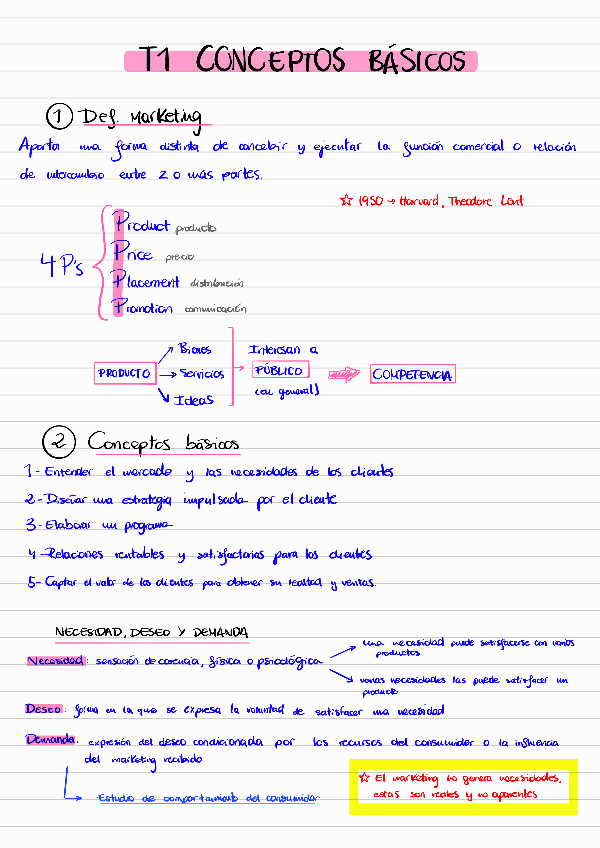 T1 CONCEPTOS BÁSICOS
1 Def. Marketing
Aporta una forma distinta de concebir y ejecutar la función comercial o relación
de intercambio entre 2 o más partes.
☆ 1950 → Harvard, Theodore
4 P's
Product producto
Price precio
Placement distribución
Promotion comunicación
PRODUCTO
→ Bienes
→ Servicios
→ Ideas
Interesan a
PÚBLICO
(en general)
COMPETENCIA
2 Conceptos básicos
1- Entender el mercado y las necesidades de los clientes
2- Diseñar una estrategia impulsada por el cliente
3- Elaborar un programa
4- Relaciones rentables y satisfactorias para los clientes
5- Captar el valor de los clientes para obtener su lealtad y ventas.
NECESIDAD, DESEO Y DEMANDA
Necesidad: sensación de carencia, física o psicológica
una necesidad puede satisfacerse con varios
productos
varias necesidades las puede satisfacer un
producto
Deseo: forma en la que se expresa la voluntad de satisfacer una necesidad
Demanda: expresión del deseo condicionada por los recursos del consumidor o la influencia
del marketing recibido
→ Estudio de comportamiento del consumidor
☆ El marketing no genera necesidades,
estas son reales y no aparentes